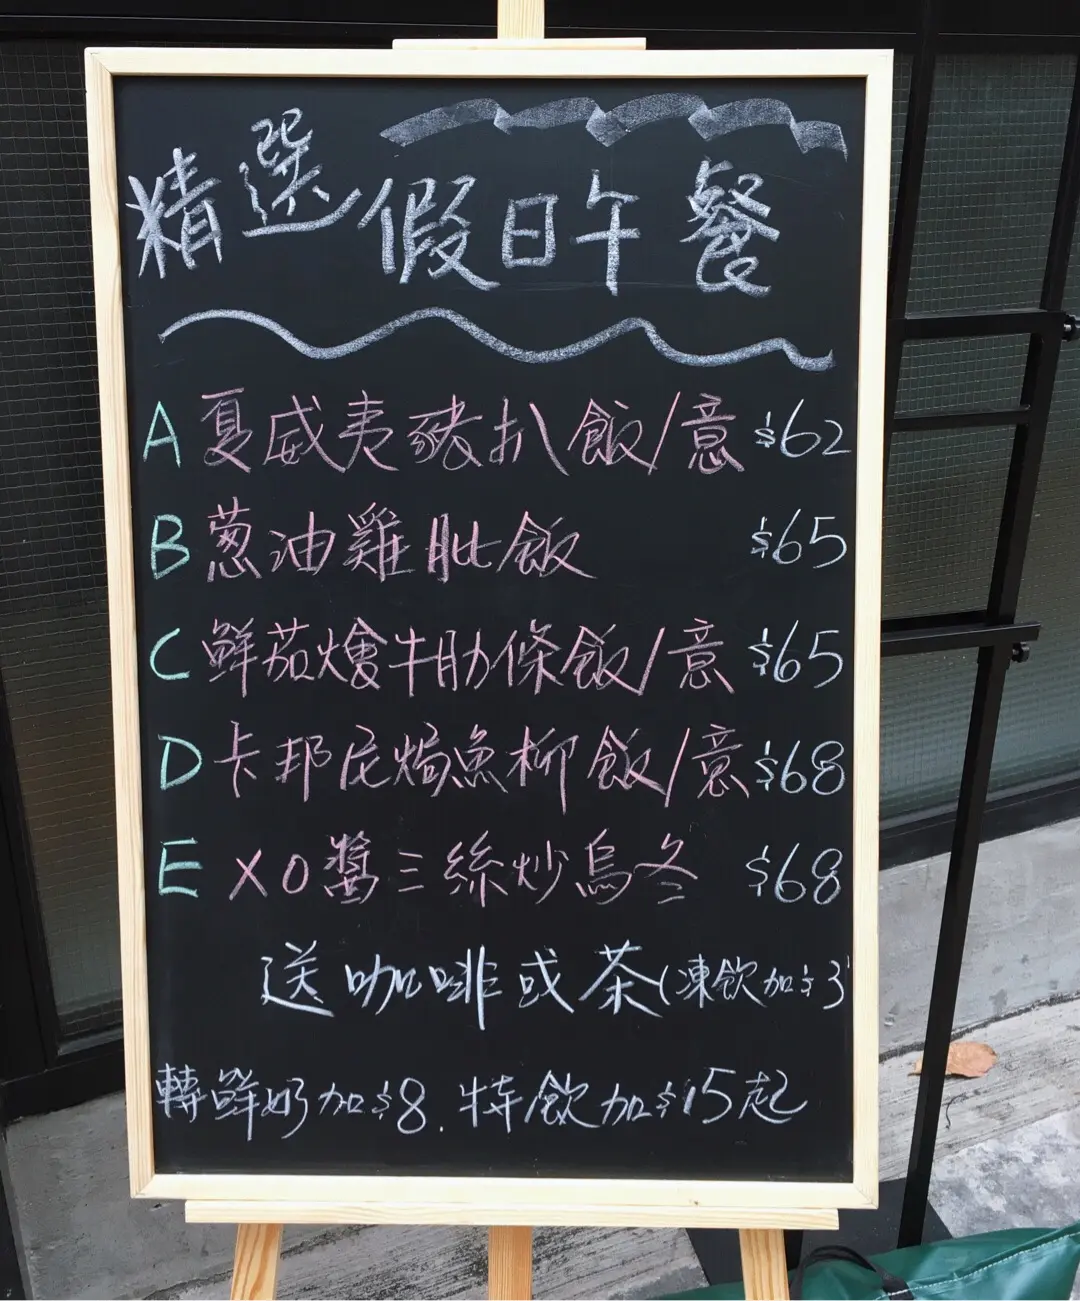 精選假日午餐
A 夏威夷豬扒飯/意 $62
B 葱油雞肶飯 $65
C 鮮茄燴牛肋條飯/意 $65
D 卡邦尼焗魚柳飯/意 $68
E XO醬三絲炒烏冬 $68
送咖啡或茶(凍飲加$3
轉鮮奶加$8. 特飲加$15起